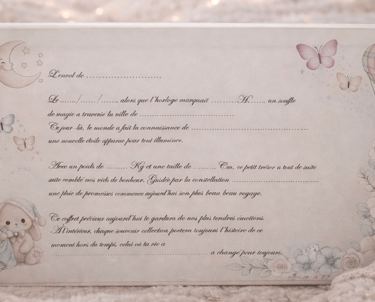 L'envol de ..............................
Le ....../....../...... alors que l'horloge marquait ..........H...... un souffle
de magie a traversé la ville de ......................................
Ce jour-là, le monde a fait la connaissance de ..............................................
une nouvelle étoile apparue pour tout illuminer.
Avec un poids de .......... Kg et une taille de .......... Cm, ce petit trésor a tout de suite
suite comblé nos vies de bonheur. Guidée par la constellation ..............................
une pluie de promesses commence aujourd'hui son plus beau voyage.
Ce coffret précieux aujourd'hui le gardien de nos plus tendres émotions.
À l'intérieur, chaque souvenir collection portera toujours l'histoire de ce
moment hors du temps, celui où ta vie a
.............................. a changé pour toujours.